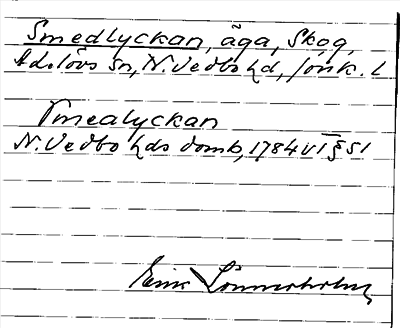 Smedlyckan, äga, Skog,
Adelövs sn, N. Vedbo hd, Jönk. l
Smedlyckan
N. Vedbo hds domb, 1784 VI § 51